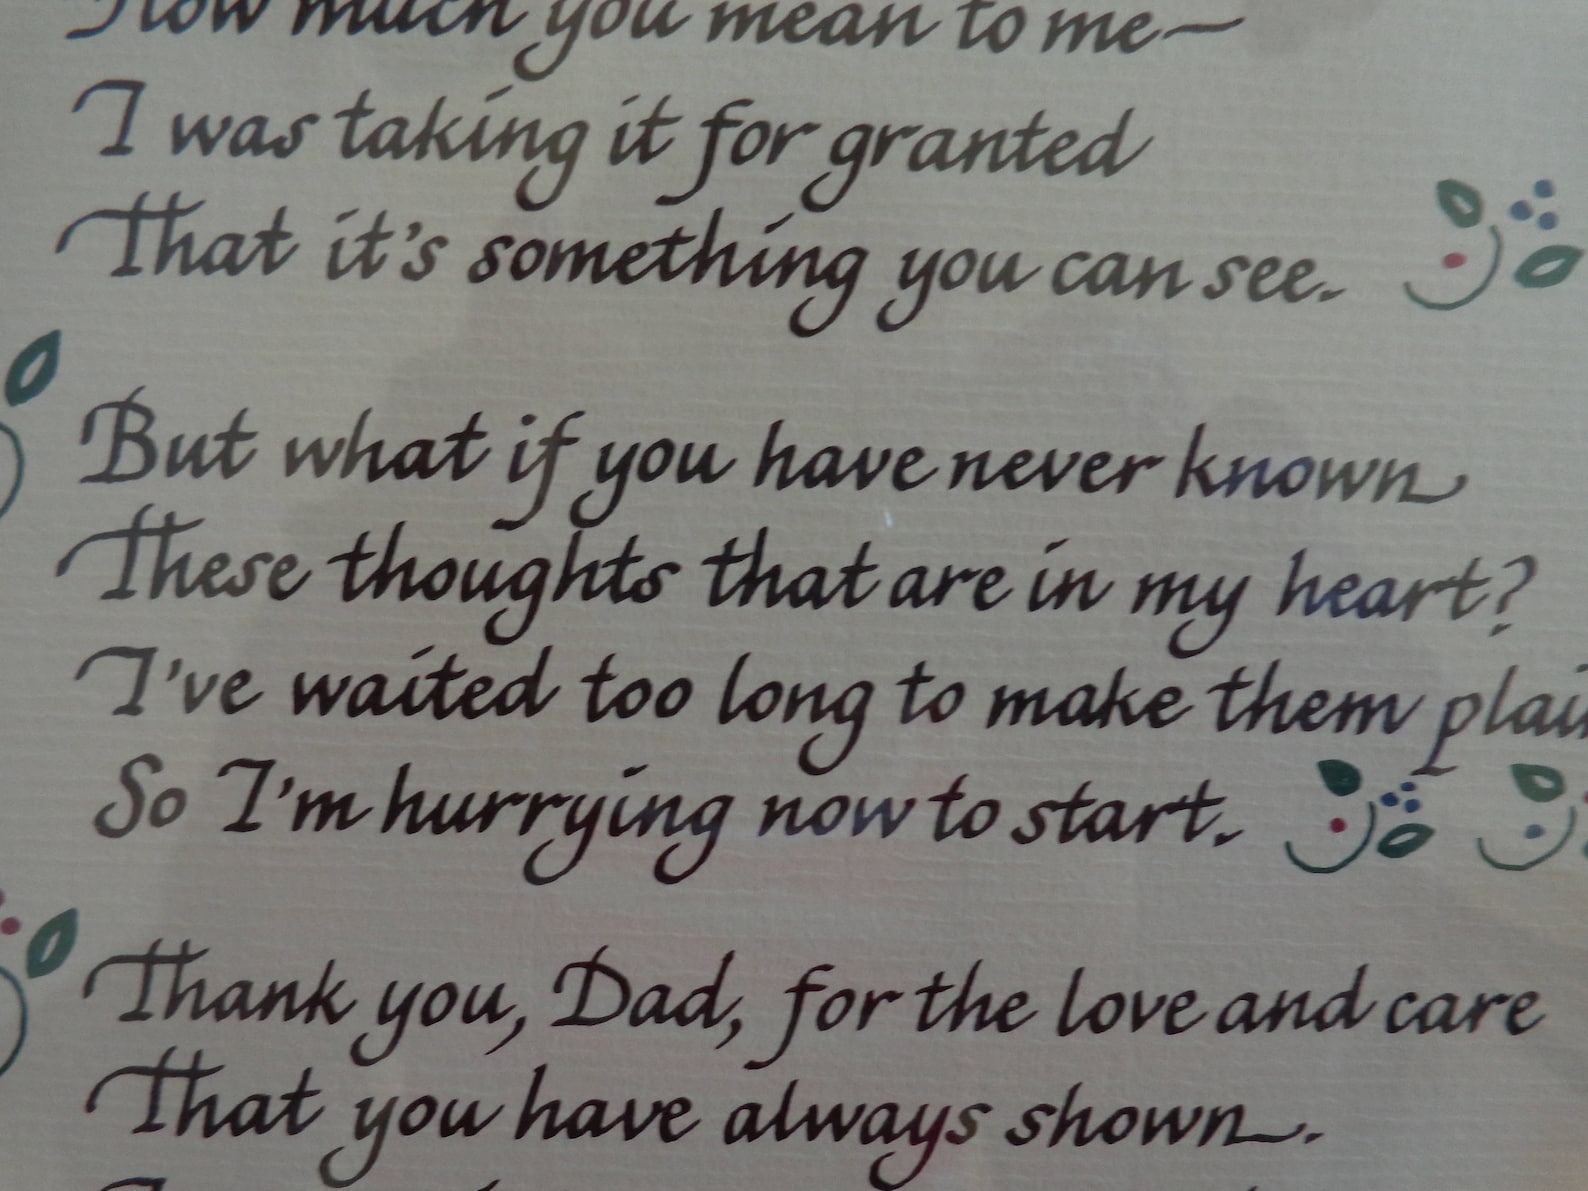 How much you mean to me—
I was taking it for granted
That it's something you can see.
But what if you have never known
These thoughts that are in my heart?
I've waited too long to make them plai
So I'm hurrying now to start.
Thank you, Dad, for the love and care
That you have always shown.